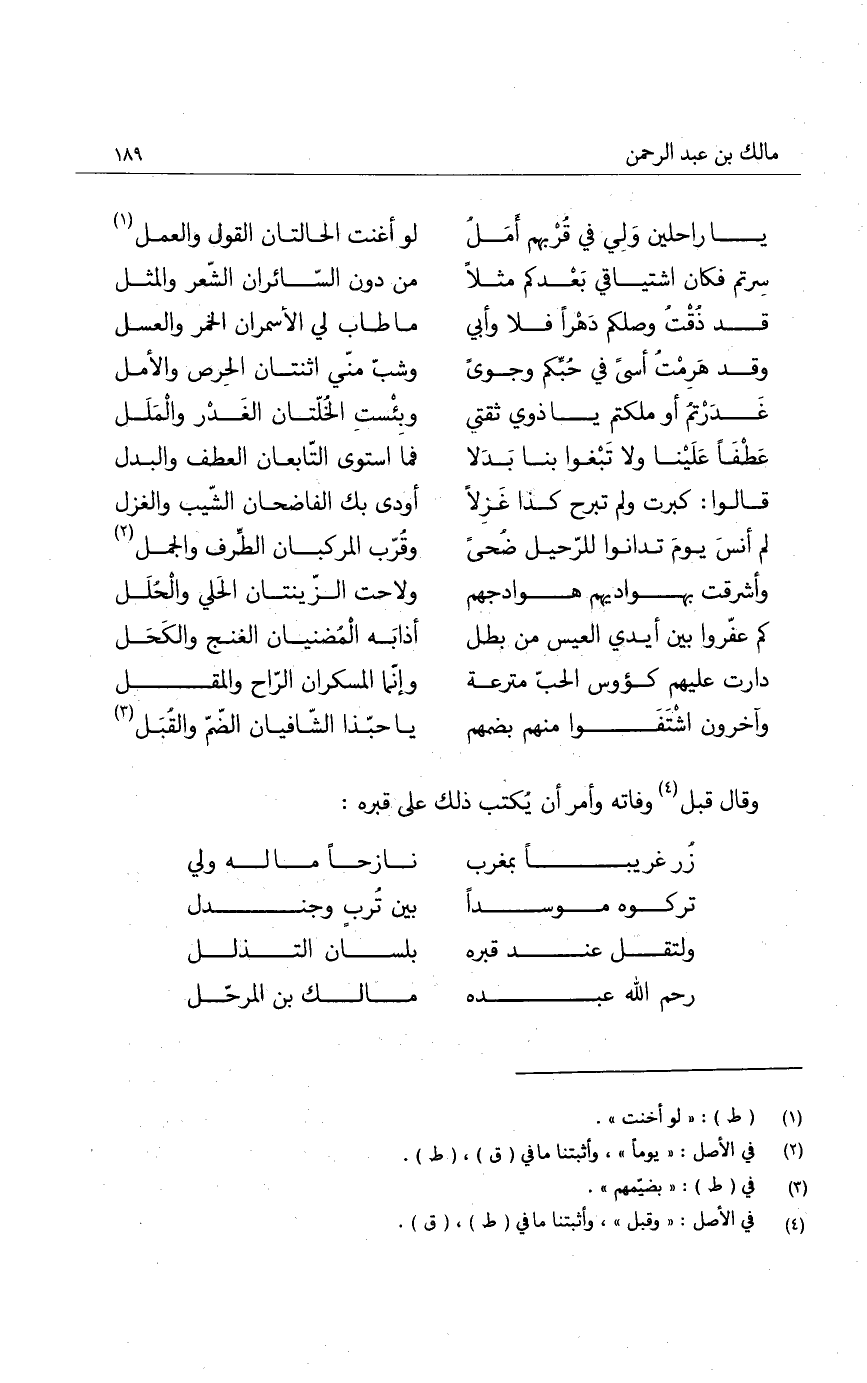 مالك بن عبد الرحمن ١٨٩
يا راحلين وَلي في قُرْبهم أَمَلُ لو أغنت الحالتان القول والعمل(١)
سِرتم فكان اشتياقي بَعْدكم مثلاً من دون السّائران الشّعر والمثل
قد ذُقْتُ وصلكم دَهْراً فلا وأبي ما طاب لي الأسمران الخمر والعسل
وقد هَرِمْتُ أسىً في حُبّكم وجوىً وشبّ منّي اثنتان الحِرص والأمل
غَدَرْتُمُ أو ملكتم يا ذوي ثقتي وبِئْستِ الخُلّتان الغَدْر والْمَلَل
عَطْفَاً عَلَيْنا ولا تَبْغوا بنا بَدَلا فما استوى التّابعان العطف والبدل
قالوا : كبرت ولم تبرح كذا غَزِلاً أودى بك الفاضحان الشّيب والغزل
لم أنسَ يومَ تدانوا للرّحيل ضُحىً وقُرّب المركبان الطِّرف والجمل(٢)
وأشرقت بهواديهم هوادجهم ولاحت الزّينتان الحَلي والْحُلَل
كم عفّروا بين أيدي العيس من بطل أذابَه الْمُضنيان الغنج والكَحَل
دارت عليهم كؤوس الحبّ مترعة وإنّما المسكران الرّاح والمقل
وآخرون اشْتَفَوا منهم بضمهم يا حبّذا الشّافيان الضّمّ والقُبَل(٣)
وقال قبل(٤) وفاته وأمر أن يُكتب ذلك على قبره :
زُر غريباً بمغرب نازحاً ماله ولي
تركوه موسداً بين تُربٍ وجندل
ولتقل عند قبره بلسان التذلل
رحم الله عبده مالك بن المرحّل
(١) ( ط ) : « لو أخنت » .
(٢) في الأصل : « يوماً » ، وأثبتنا ما في ( ق ) ، ( ط ) .
(٣) في ( ط ) : « بضيّمهم » .
(٤) في الأصل : « وقبل » ، وأثبتنا ما في ( ط ) ، ( ق ) .